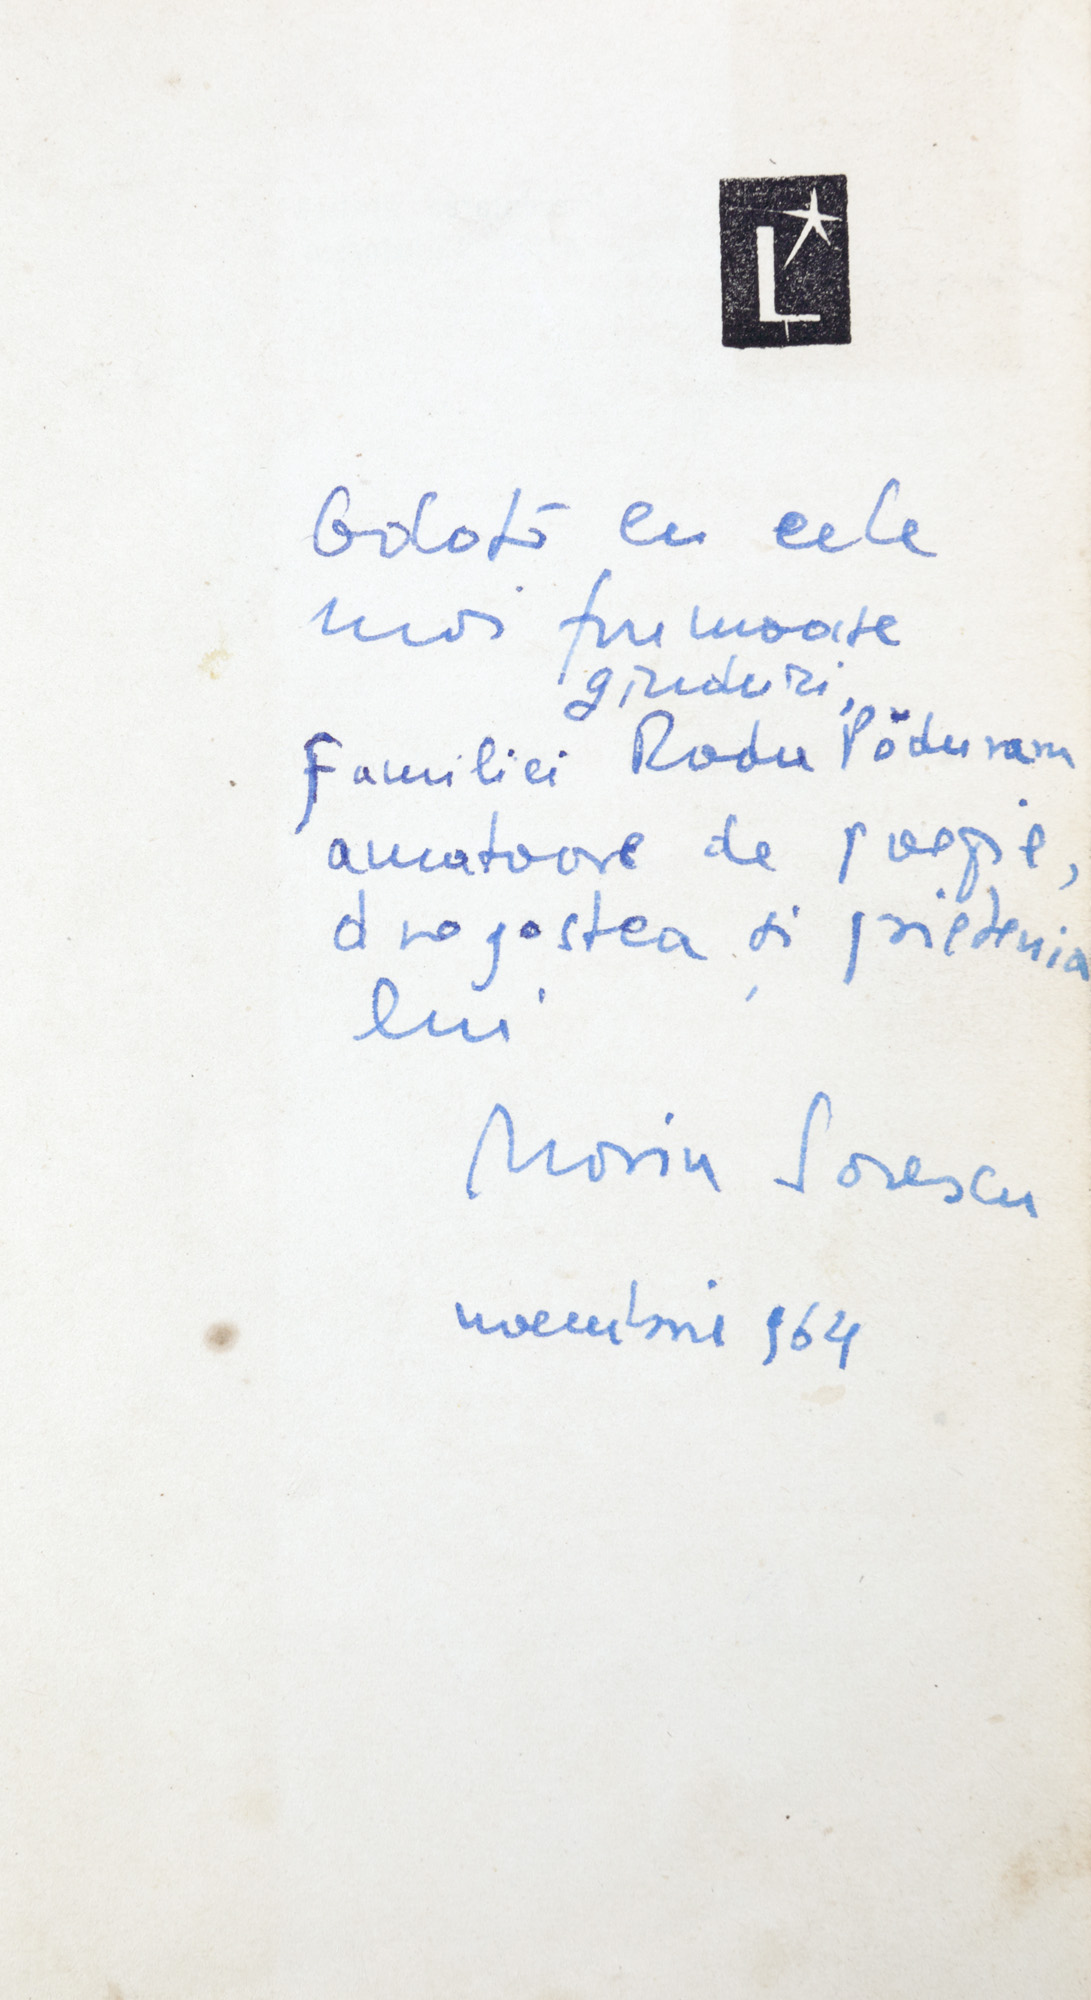 L
Odată cu cele
mai frumoase
gînduri,
Familiei Radu Păduraru
amatoare de poezie,
dragostea și prietenia
lui
Marin Sorescu
noembrie 964